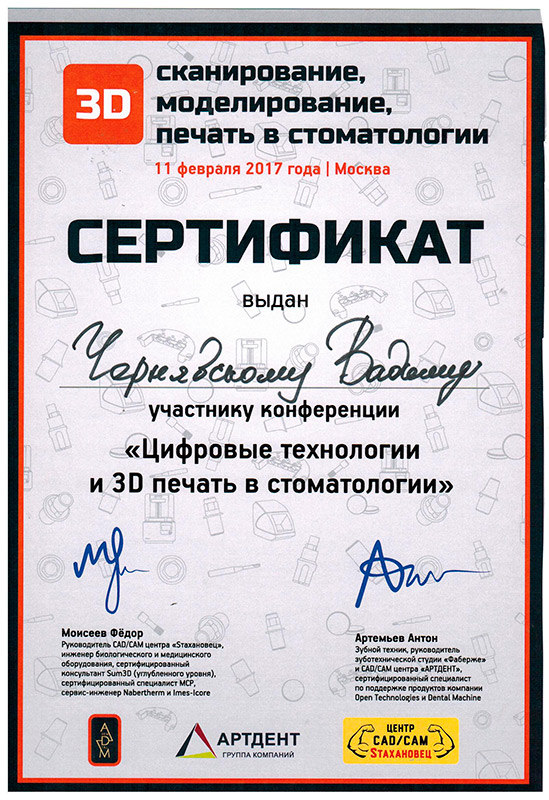 3D
сканирование,
моделирование,
печать в стоматологии
11 февраля 2017 года | Москва
СЕРТИФИКАТ
выдан
Чернявскому Вадиму
участнику конференции
«Цифровые технологии
и 3D печать в стоматологии»
Моисеев Фёдор
Руководитель CAD/CAM центра «Stахановец»,
инженер биологического и медицинского
оборудования, сертифицированный
консультант Sum3D (углубленного уровня),
сертифицированный специалист MCP,
сервис-инженер Nabertherm и Imes-Icore
Артемьев Антон
Зубной техник, руководитель
зуботехнической студии «Фаберже»
и CAD/CAM центра «АРТДЕНТ»,
сертифицированный специалист
по поддержке продуктов компании
Open Technologies и Dental Machine
A
D
M
АРТДЕНТ
ГРУППА КОМПАНИЙ
ЦЕНТР
CAD/CAM
STАХАНОВЕЦ